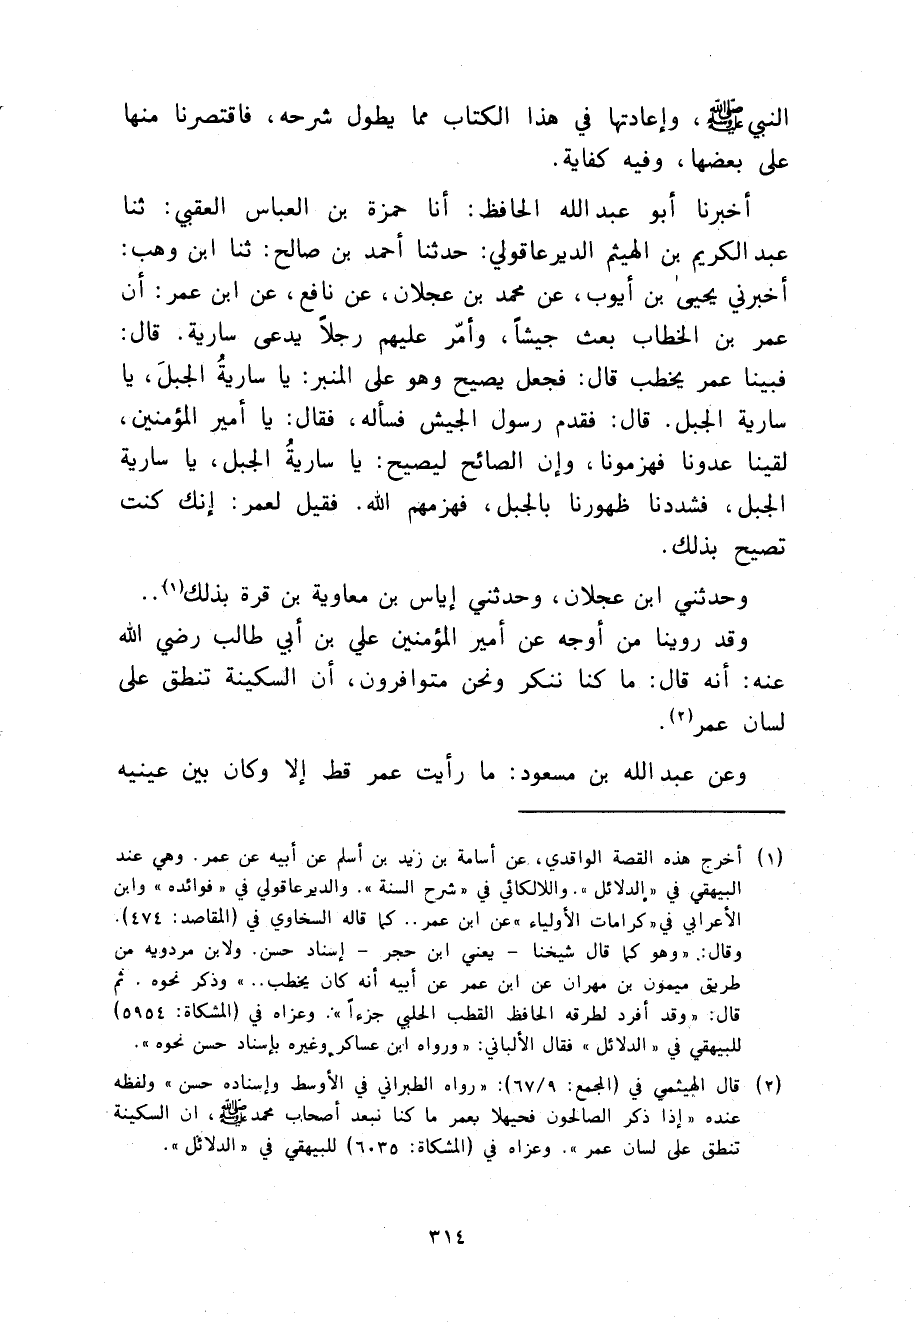 النبي ﷺ، وإعادتها في هذا الكتاب مما يطول شرحه، فاقتصرنا منها
على بعضها، وفيه كفاية.
أخبرنا أبو عبد الله الحافظ: أنا حمزة بن العباس العقبي: ثنا
عبد الكريم بن الهيثم الديرعاقولي: حدثنا أحمد بن صالح: ثنا ابن وهب:
أخبرني يحيىٰ بن أيوب، عن محمد بن عجلان، عن نافع، عن ابن عمر: أن
عمر بن الخطاب بعث جيشاً، وأمّر عليهم رجلاً يدعى سارية. قال:
فبينا عمر يخطب قال: فجعل يصيح وهو على المنبر: يا ساريةُ الجبلَ، يا
سارية الجبل. قال: فقدم رسول الجيش فسأله، فقال: يا أمير المؤمنين،
لقينا عدونا فهزمونا، وإن الصائح ليصيح: يا ساريةُ الجبل، يا سارية
الجبل، فشددنا ظهورنا بالجبل، فهزمهم الله. فقيل لعمر: إنك كنت
تصيح بذلك.
وحدثني ابن عجلان، وحدثني إياس بن معاوية بن قرة بذلك(١)..
وقد روينا من أوجه عن أمير المؤمنين علي بن أبي طالب رضي الله
عنه: أنه قال: ما كنا ننكر ونحن متوافرون، أن السكينة تنطق على
لسان عمر(٢).
وعن عبد الله بن مسعود: ما رأيت عمر قط إلا وكان بين عينيه
(١) أخرج هذه القصة الواقدي، عن أسامة بن زيد بن أسلم عن أبيه عن عمر. وهي عند
البيهقي في «الدلائل». واللالكائي في «شرح السنة». والديرعاقولي في «فوائده» وابن
الأعرابي في«كرامات الأولياء »عن ابن عمر.. كما قاله السخاوي في (المقاصد: ٤٧٤).
وقال: «وهو كما قال شيخنا - يعني ابن حجر - إسناد حسن. ولابن مردويه من
طريق ميمون بن مهران عن ابن عمر عن أبيه أنه كان يخطب..» وذكر نحوه. ثم
قال: «وقد أفرد لطرقه الحافظ القطب الحلبي جزءاً». وعزاه في (المشكاة: ٥٩٥٤)
للبيهقي في «الدلائل» فقال الألباني: «ورواه ابن عساكر وغيره بإسناد حسن نحوه».
(٢) قال الهيثمي في (المجمع: ٦٧/٩): «رواه الطبراني في الأوسط وإسناده حسن» ولفظه
عنده «إذا ذكر الصالحون فحيهلا بعمر ما كنا نبعد أصحاب محمد ﷺ، ان السكينة
تنطق على لسان عمر». وعزاه في (المشكاة: ٦٠٣٥) للبيهقي في «الدلائل».
٣١٤